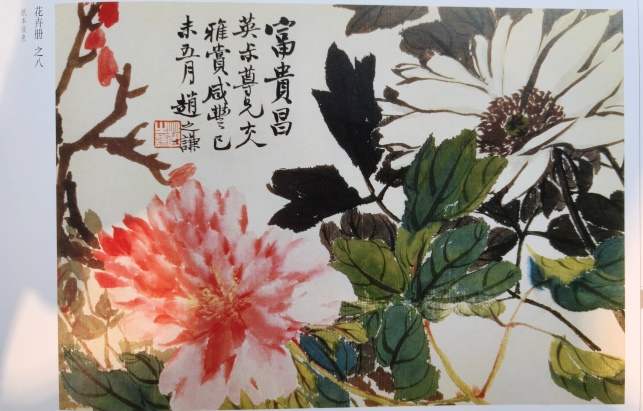 花卉册 之八
纸本设色
富貴昌
英尗尊兄大人
雅賞咸豐己
未五月趙之謙